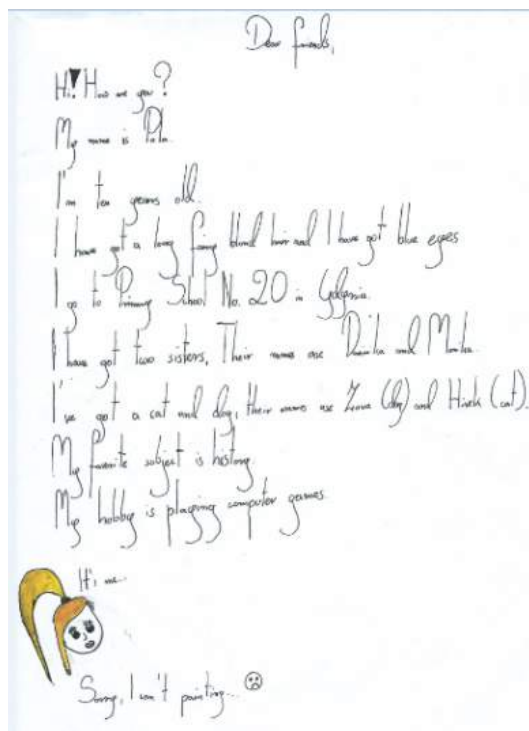 Dear friends,
Hi! How are you?
My name is
I'm ten years old.
I have got a long blond hair and I have got blue eyes
I go to Primary School No. 20 in
I have got two sisters, Their names are and
I've got a cat and dog, their names are (dog) and (cat).
My favorite subject is history.
My hobby is playing computer games.
It's me...
Sorry, I can't painting...